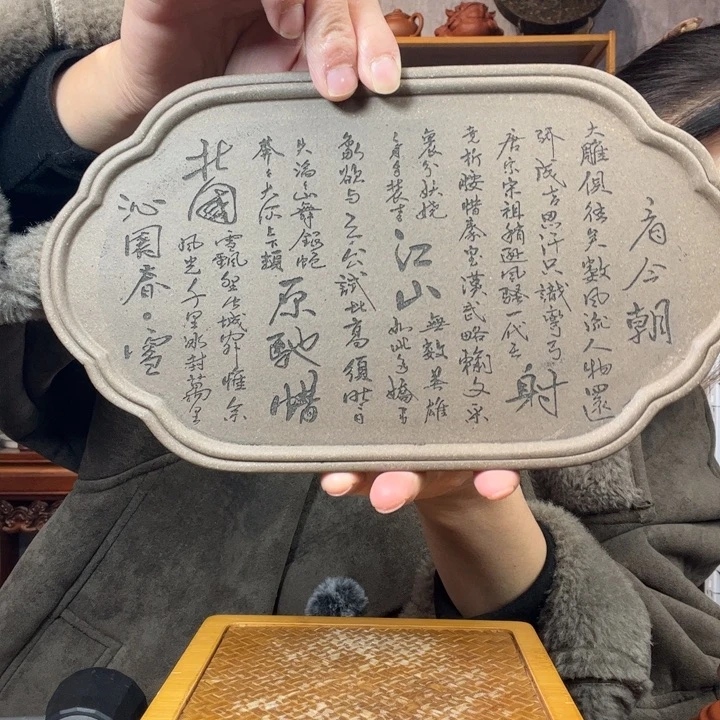 沁園春·雪
北國
風光千里冰封萬里
雪飄望长城内外惟余
莽莽大河上下頓
失滔滔山舞銀蛇
原馳蜡
象欲与天公試比高須晴日
看紅装素
裹分外妖嬈
江山
如此多嬌引
無數英雄
竞折腰惜秦皇漢武略輸文采
唐宗宋祖稍逊風騷一代天
骄成吉思汗只識彎弓
射
大雕俱往矣數風流人物還
看今朝